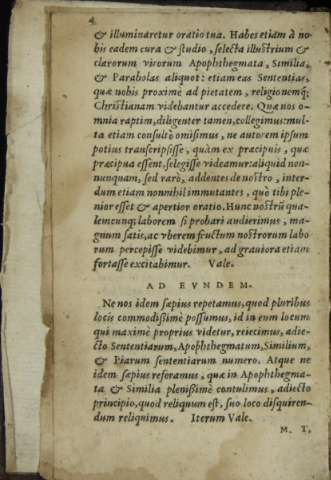 4
& illuminaretur oratio tua. Habes etiam à no-
bis eadem cura & studio, selecta illustrium &
clarorum virorum Apophthegmata, Similia,
& Parabolas aliquot: etiam eas Sententias,
quæ nobis proximè ad pietatem, religionemq;
Christianam videbantur accedere. Quæ nos o-
mnia raptim, diligenter tamen, collegimus: mul-
ta etiam consultò omisimus, ne autorem ipsum
potius transcripsisse, quàm ex præcipuis, quæ
præcipua essent, selegisse videamur: aliquid non-
nunquam, sed rarò, addentes de nostro, inter-
dum etiam nonnihil immutantes, quò tibi ple-
nior esset & apertior oratio. Hunc nostrũ qua-
lemcunq; laborem si probari audierimus, ma-
gnum satis, ac vberem fructum nostrorum labo
rum percepisse videbimur, ad grauiora etiam
fortasse excitabimur. Vale.
AD EVNDEM.
Ne nos idem sæpius repetamus, quod pluribus
locis commodissimè possumus, id in eum locum
qui maximè proprius videtur, reiecimus, adie-
cto Sententiarum, Apophthegmatum, Similium,
& Piarum sententiarum numero. Atque ne
idem sæpius referamus, quæ in Apophthegma-
ta & Similia plenissimè contulimus, adiecto
principio, quod reliquum est, suo loco disquiren-
dum reliquimus. Iterum Vale.
M. T.